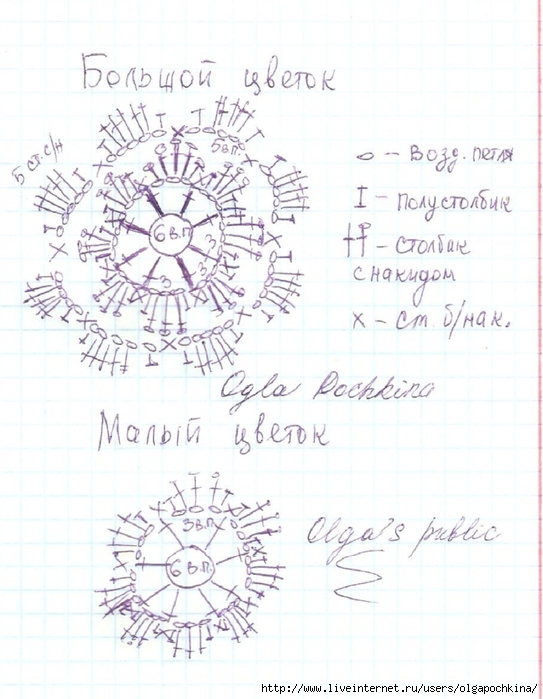 Большой цветок
5 ст. с/н
5 вп
6 вп
3
3
3
о – Возд. петля
I – полустолбик
†† – столбик
с накидом
x – ст. б/нак.
Ogla Pochkina
Малый цветок
3 вп
6 вп
Olga's public
http://www.liveinternet.ru/users/olgapochkina/